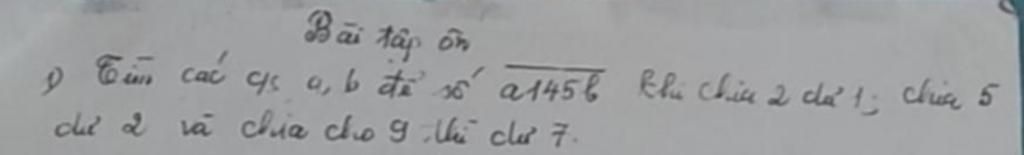 Bài tập ôn
1) Tìm các c/s a, b để số a145b khi chia 2 dư 1; chia 5
dư 2 và chia cho 9 thì dư 7.